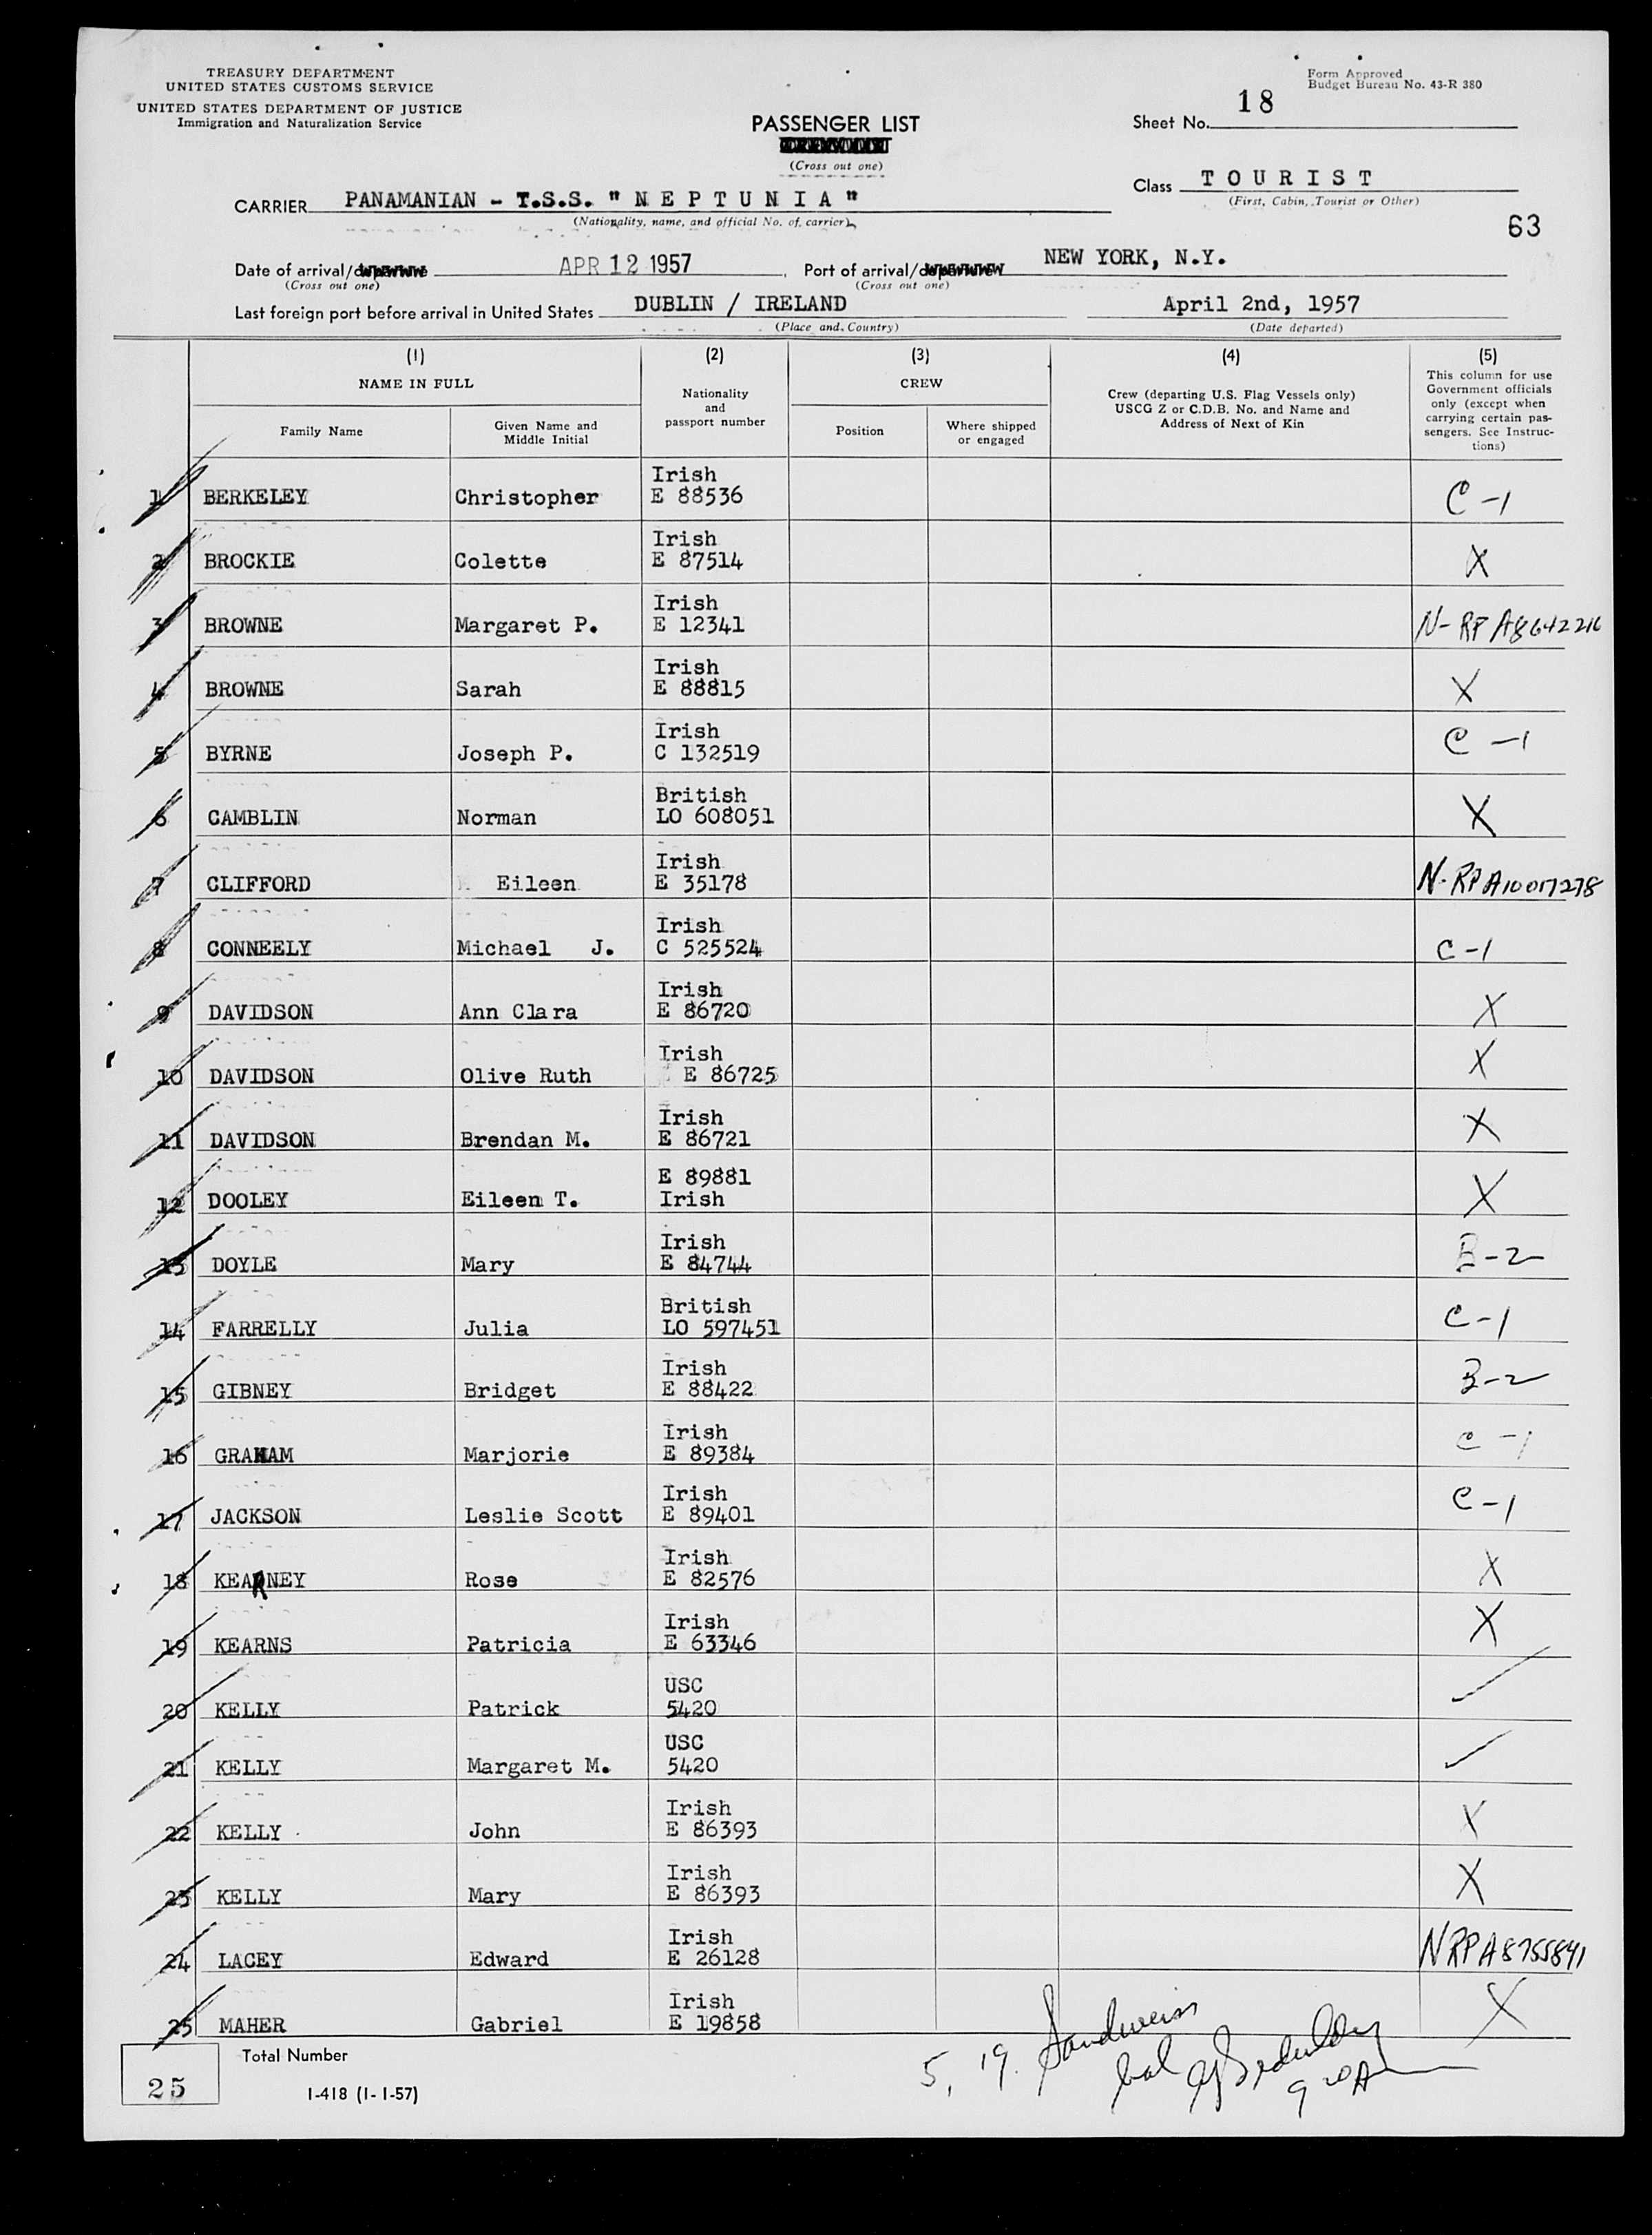 TREASURY DEPARTMENT
UNITED STATES CUSTOMS SERVICE
UNITED STATES DEPARTMENT OF JUSTICE
Immigration and Naturalization Service
Form Approved
Budget Bureau No. 43-R 380
PASSENGER LIST
(Cross out one)
Sheet No. 18
Class TOURIST
(First, Cabin, Tourist or Other)
CARRIER PANAMANIAN - T.S.S. "NEPTUNIA"
(Nationality, name, and official No. of carrier)
63
Date of arrival/ APR 12 1957, Port of arrival/ NEW YORK, N.Y.
(Cross out one) (Cross out one)
Last foreign port before arrival in United States DUBLIN / IRELAND April 2nd, 1957
(Place and Country) (Date departed)
(1) (2) (3) (4) (5)
NAME IN FULL
Family Name
Given Name and
Middle Initial
Nationality
and
passport number
CREW
Position
Where shipped
or engaged
Crew (departing U.S. Flag Vessels only)
USCG Z or C.D.B. No. and Name and
Address of Next of Kin
This column for use
Government officials
only (except when
carrying certain pas-
sengers. See Instruc-
tions)
Irish
1 BERKELEY Christopher E 88536 C-1
Irish
2 BROCKIE Colette E 87514 X
Irish
3 BROWNE Margaret P. E 12341 N-RP A8642216
Irish
4 BROWNE Sarah E 88815 X
Irish
5 BYRNE Joseph P. C 132519 C-1
British
6 CAMBLIN Norman LO 608051 X
Irish
7 CLIFFORD Eileen E 35178 N-RP A10017278
Irish
8 CONNEELY Michael J. C 525524 C-1
Irish
9 DAVIDSON Ann Clara E 86720 X
Irish
10 DAVIDSON Olive Ruth E 86725 X
Irish
11 DAVIDSON Brendan M. E 86721 X
E 89881
12 DOOLEY Eileen T. Irish X
Irish
13 DOYLE Mary E 84744 B-2
British
14 FARRELLY Julia LO 597451 C-1
Irish
15 GIBNEY Bridget E 88422 B-2
Irish
16 GRAHAM Marjorie E 89384 C-1
Irish
17 JACKSON Leslie Scott E 89401 C-1
Irish
18 KEARNEY Rose E 82576 X
Irish
19 KEARNS Patricia E 63346 X
USC
20 KELLY Patrick 5420
USC
21 KELLY Margaret M. 5420
Irish
22 KELLY John E 86393 X
Irish
23 KELLY Mary E 86393 X
Irish
24 LACEY Edward E 26128 NRP A8755841
Irish
25 MAHER Gabriel E 19858 X
Total Number
25
I-418 (1-1-57)
5, 19. Sandweiss
bal